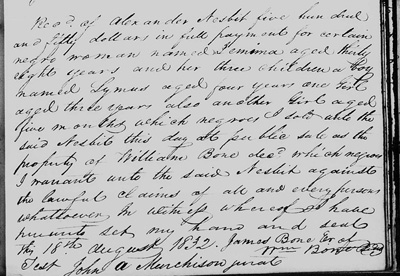 Recd. of Alexander Nesbit five hundred
and fifty dollars in full payment for certain
negro woman named Jemima aged thirty
eight years and her three children a Boy
named Symus aged four years one Girl
aged three years also another Girl aged
five months which negroes I sold unto the
said Nesbit this day at public sale as the
property of William Bone decd. which negroes
I warrant unto the said Nesbit against
the lawful claims of all and every persons
whatsoever. In witness whereof I have
set my hand and seal
the 18th August 1832. James Bone Exr of
Wm Bone
Test John A Murchison jurat